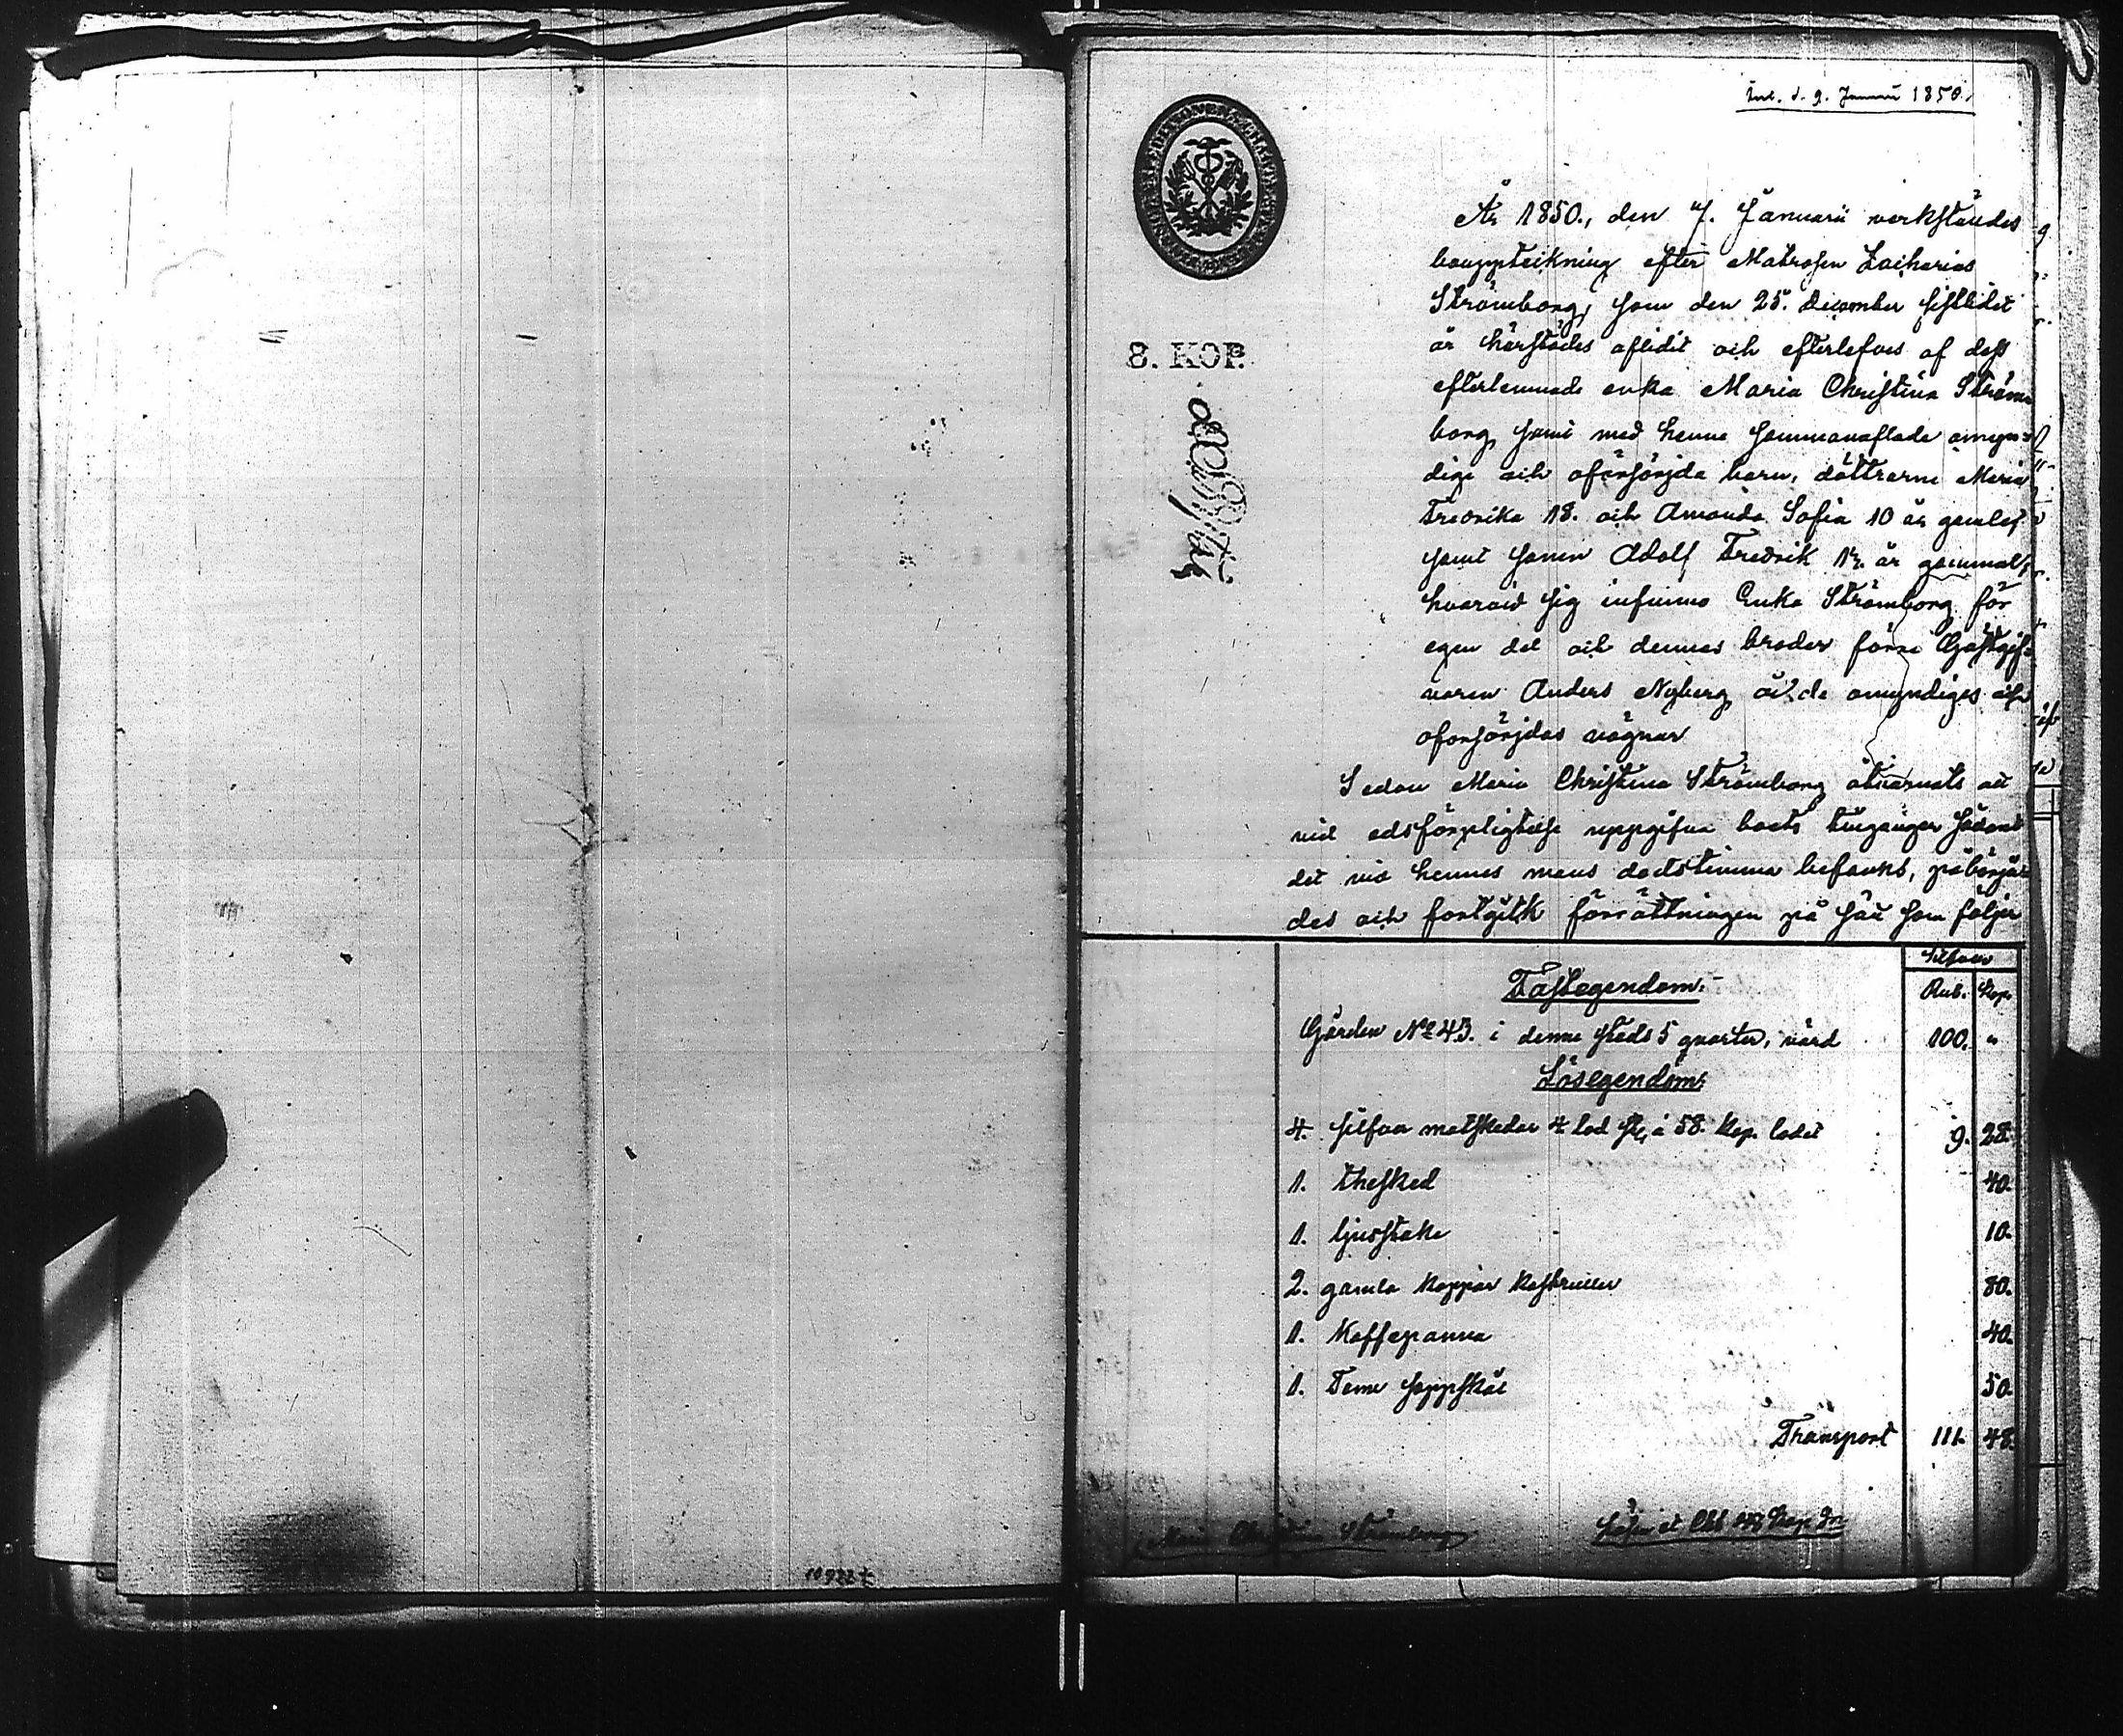 Inl. d. 9. Januari 1850.
År 1850., den 7. Januarii verkställdes
bouppteikning efter Matrosen Zacharias
Strömborg, som den 25. December sistlidet
8. KOP.
är härstädes aflidit och efterlefves af dess
efterlemnade enka Maria Christina Ström-
borg samt med henne sammanaflade omyn-
dige och oförsörjda barn, döttrarne Maria
Fredrika 18. och Amanda Sofia 10 år gamla,
samt sonen Adolf Fredrik 12. år gammal,
hvarvid sig infunno Enka Strömborg för
egen del och dennes broder förre Gästgif-
varen Anders Nyberg å de omyndiges och
oförsörjdas vägnar
Sedan Maria Christina Strömborg åtvarnats att
vid edsförpligtelse uppgifva boets tingångar sådant
det vid hennes mans dödstimma befanns, påbörja-
des och fortgick förrättningen på sätt som följer
Silfver
Fastegendom.
Rub. Kop.
Gården No 43. i denne stads 5 quarter, värd 100. "
Lösegendom:
4. silfver matskedar 4 lod st, à 58. Kop. lodet 9. 28.
1. thesked 40.
1. ljusstake 10.
2. gamla koppar kastruller 80.
1. Kaffepanna 40.
1. Tenn soppskål 50.
Transport 111. 48.
Maria Christina Strömborg
10922